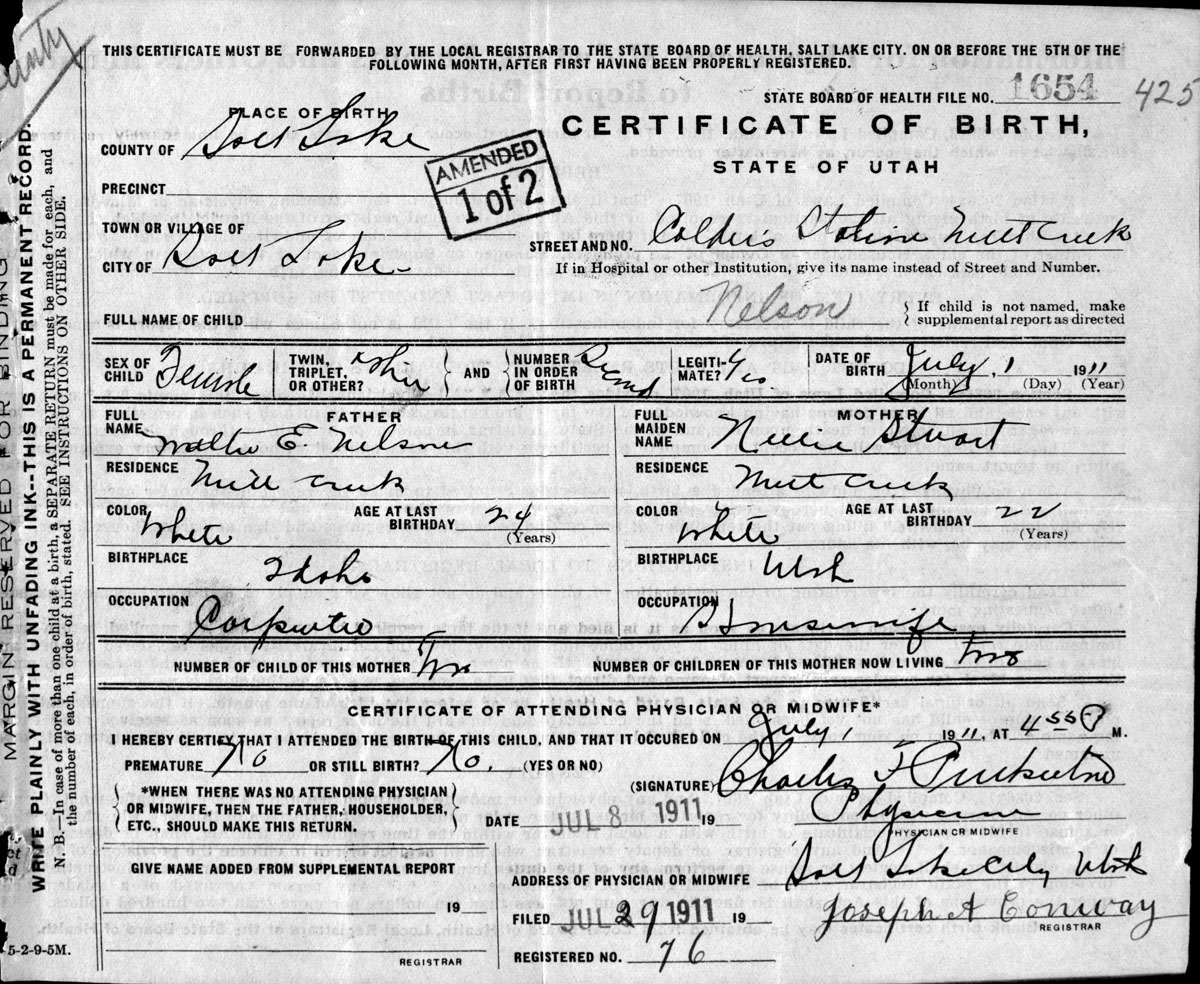 THIS CERTIFICATE MUST BE FORWARDED BY THE LOCAL REGISTRAR TO THE STATE BOARD OF HEALTH, SALT LAKE CITY, ON OR BEFORE THE 5TH OF THE
FOLLOWING MONTH, AFTER FIRST HAVING BEEN PROPERLY REGISTERED.
STATE BOARD OF HEALTH FILE NO. 1654 425
PLACE OF BIRTH
COUNTY OF Salt Lake
CERTIFICATE OF BIRTH,
STATE OF UTAH
AMENDED
1 of 2
PRECINCT
TOWN OR VILLAGE OF
CITY OF Salt Lake
STREET AND NO. Calders Station Mill Creek
If in Hospital or other Institution, give its name instead of Street and Number.
FULL NAME OF CHILD Nelson
If child is not named, make
supplemental report as directed
SEX OF CHILD Female
TWIN, TRIPLET, OR OTHER?
AND
NUMBER IN ORDER OF BIRTH Second
LEGITIMATE? Yes
DATE OF BIRTH July 1 1911
(Month) (Day) (Year)
FATHER
FULL NAME Walter E Nelson
RESIDENCE Mill Creek
COLOR White
AGE AT LAST BIRTHDAY 24
(Years)
BIRTHPLACE Idaho
OCCUPATION Carpenter
MOTHER
FULL MAIDEN NAME Nellie Stuart
RESIDENCE Mill Creek
COLOR White
AGE AT LAST BIRTHDAY 22
(Years)
BIRTHPLACE Utah
OCCUPATION Housewife
NUMBER OF CHILD OF THIS MOTHER Two
NUMBER OF CHILDREN OF THIS MOTHER NOW LIVING Two
CERTIFICATE OF ATTENDING PHYSICIAN OR MIDWIFE*
I HEREBY CERTIFY THAT I ATTENDED THE BIRTH OF THIS CHILD, AND THAT IT OCCURED ON July 1, 1911, AT 4 55 P M.
PREMATURE No OR STILL BIRTH? No. (YES OR NO)
*WHEN THERE WAS NO ATTENDING PHYSICIAN
OR MIDWIFE, THEN THE FATHER, HOUSEHOLDER,
ETC., SHOULD MAKE THIS RETURN.
(SIGNATURE) Charles F Pinkerton
DATE JUL 8 1911 19
Physician
PHYSICIAN OR MIDWIFE
GIVE NAME ADDED FROM SUPPLEMENTAL REPORT
19
REGISTRAR
ADDRESS OF PHYSICIAN OR MIDWIFE Salt Lake City Utah
FILED JUL 29 1911 19
Joseph A Conway
REGISTRAR
REGISTERED NO. 76
5-2-9-5M.
MARGIN RESERVED FOR BINDING
WRITE PLAINLY WITH UNFADING INK--THIS IS A PERMANENT RECORD.
N. B.—In case of more than one child at a birth, a SEPARATE RETURN must be made for each, and
the number of each, in order of birth, stated. SEE INSTRUCTIONS ON OTHER SIDE.